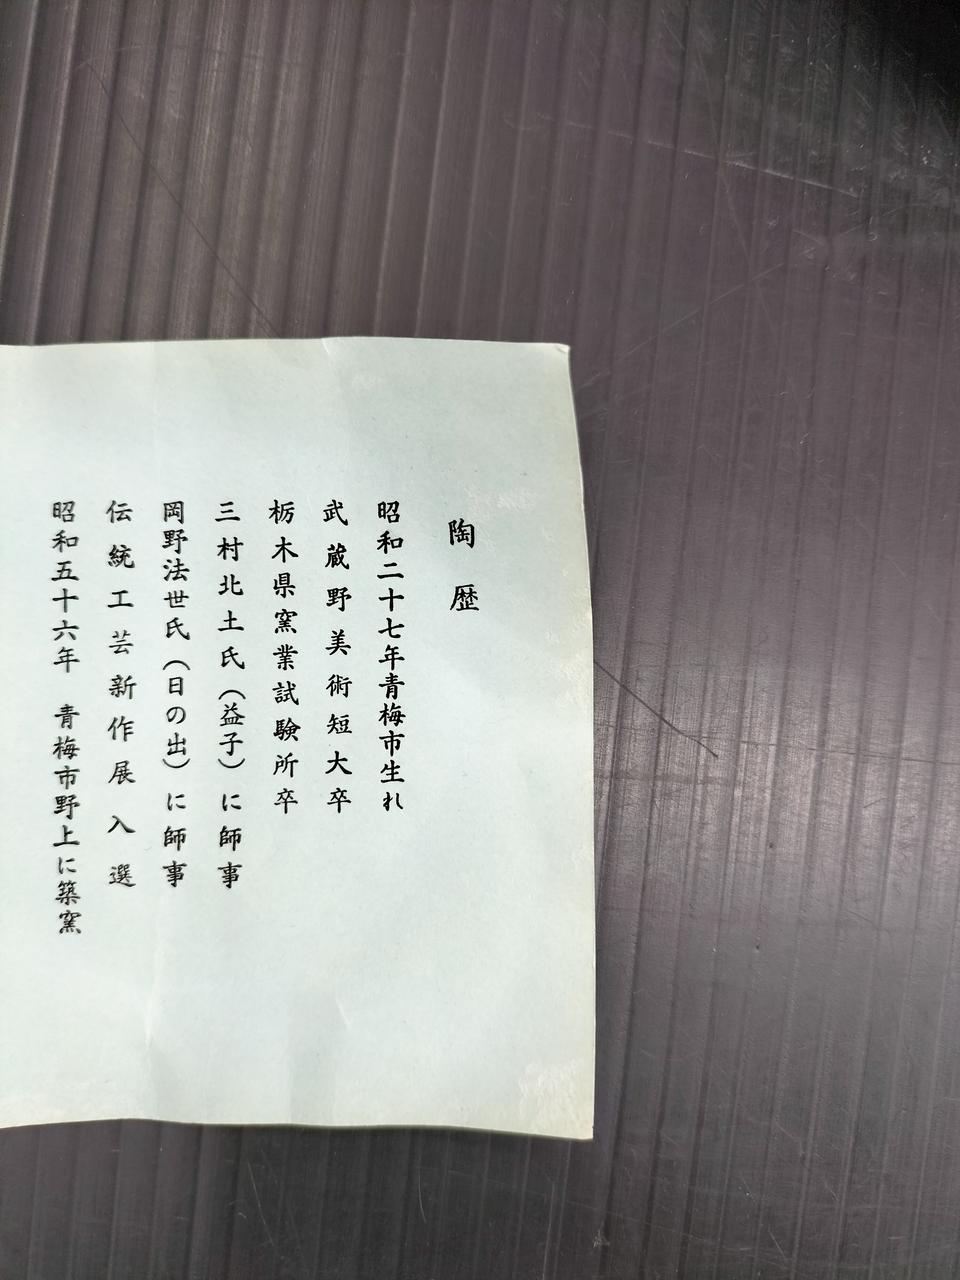 陶歴
昭和二十七年青梅市生れ
武蔵野美術短大卒
栃木県窯業試験所卒
三村北土氏（益子）に師事
岡野法世氏（日の出）に師事
伝統工芸新作展入選
昭和五十六年　青梅市野上に築窯